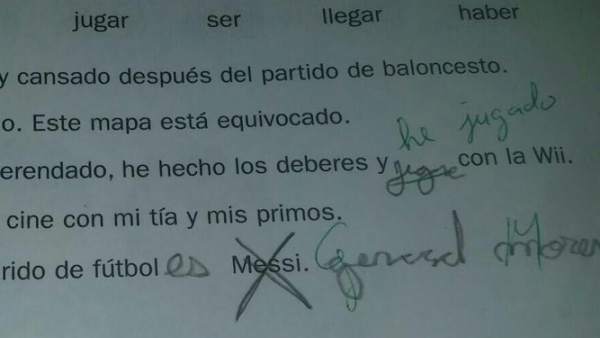 jugar ser llegar haber
y cansado después del partido de baloncesto.
o. Este mapa está equivocado.
he jugado
erendado, he hecho los deberes y jugue con la Wii.
cine con mi tía y mis primos.
rido de fútbol es Messi. General